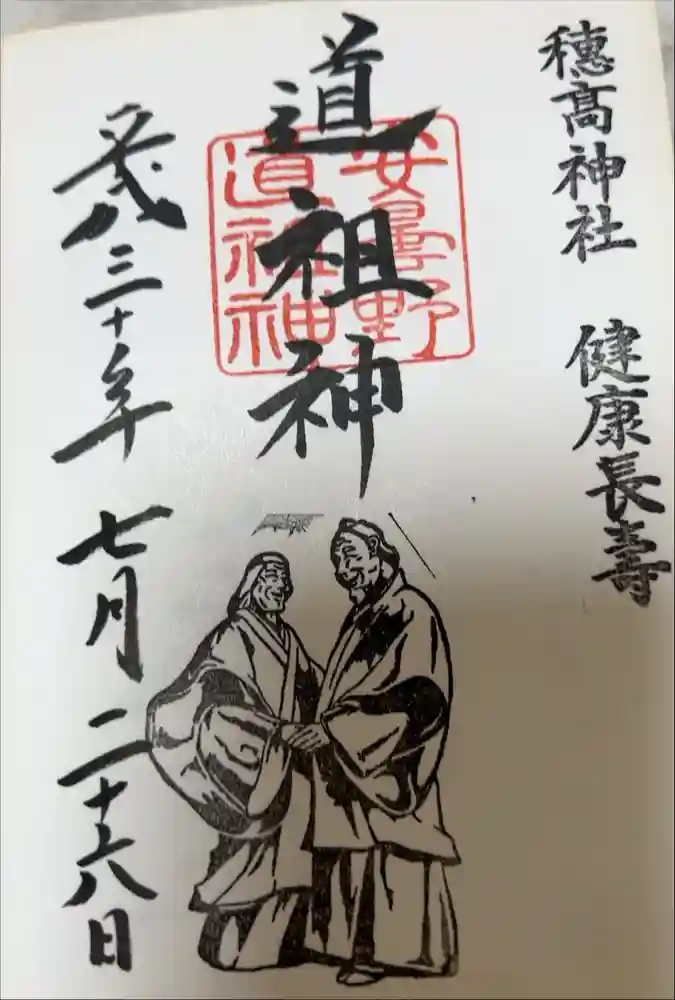 穂高神社 健康長壽
道祖神
安曇野
道祖神
平成三十年 七月 二十六日